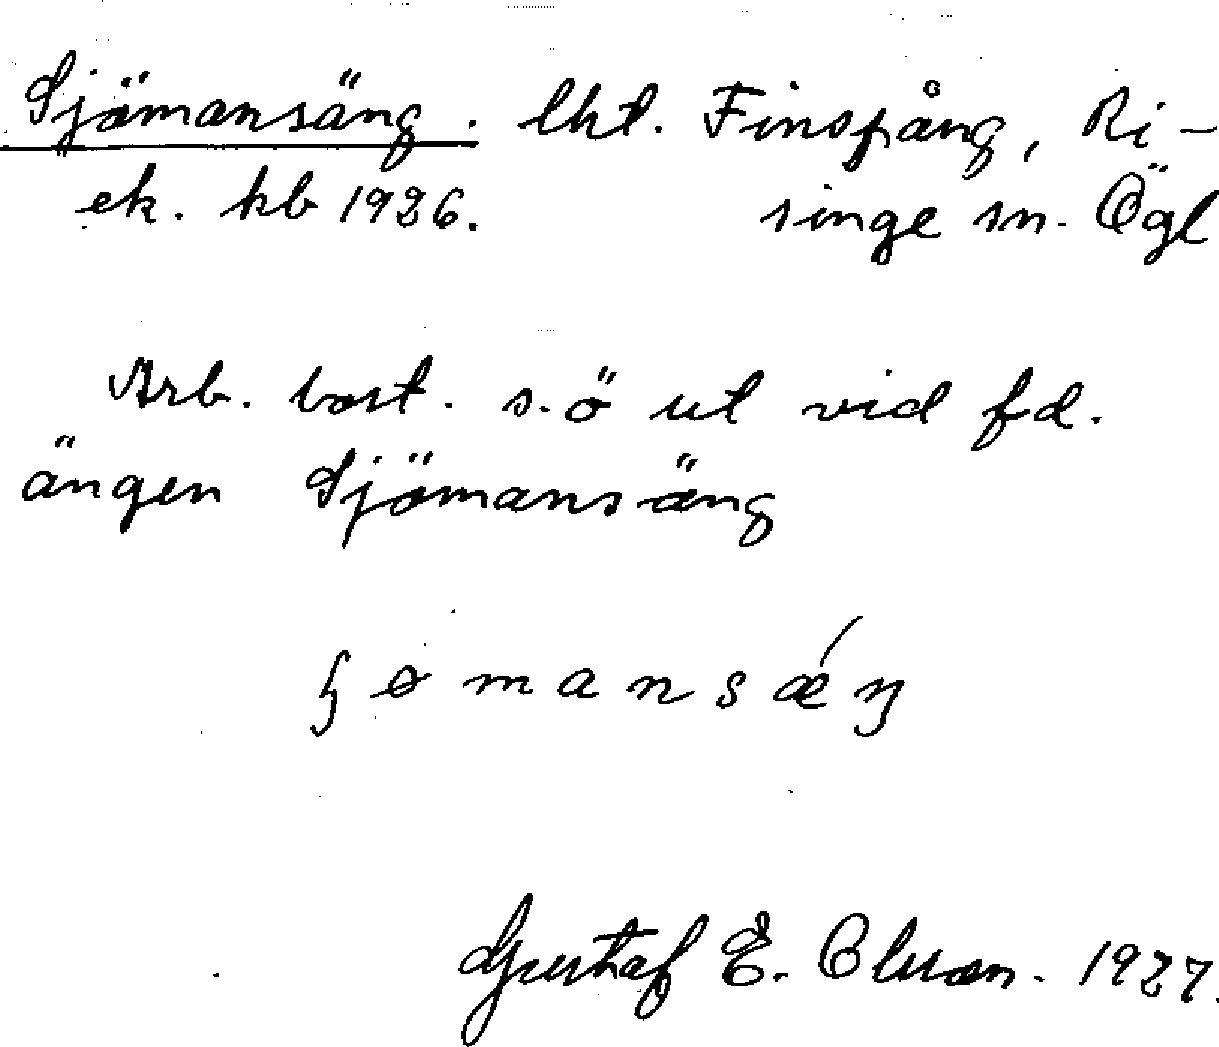 Sjömansäng. lht. Finspång, Ri-
ek. hb 1926. singe sn. Ögl
Arb. bost. s.ö ut vid fd.
ängen Sjömansäng
ɧømansǽŋ
Gustaf E. Olsson. 1927.